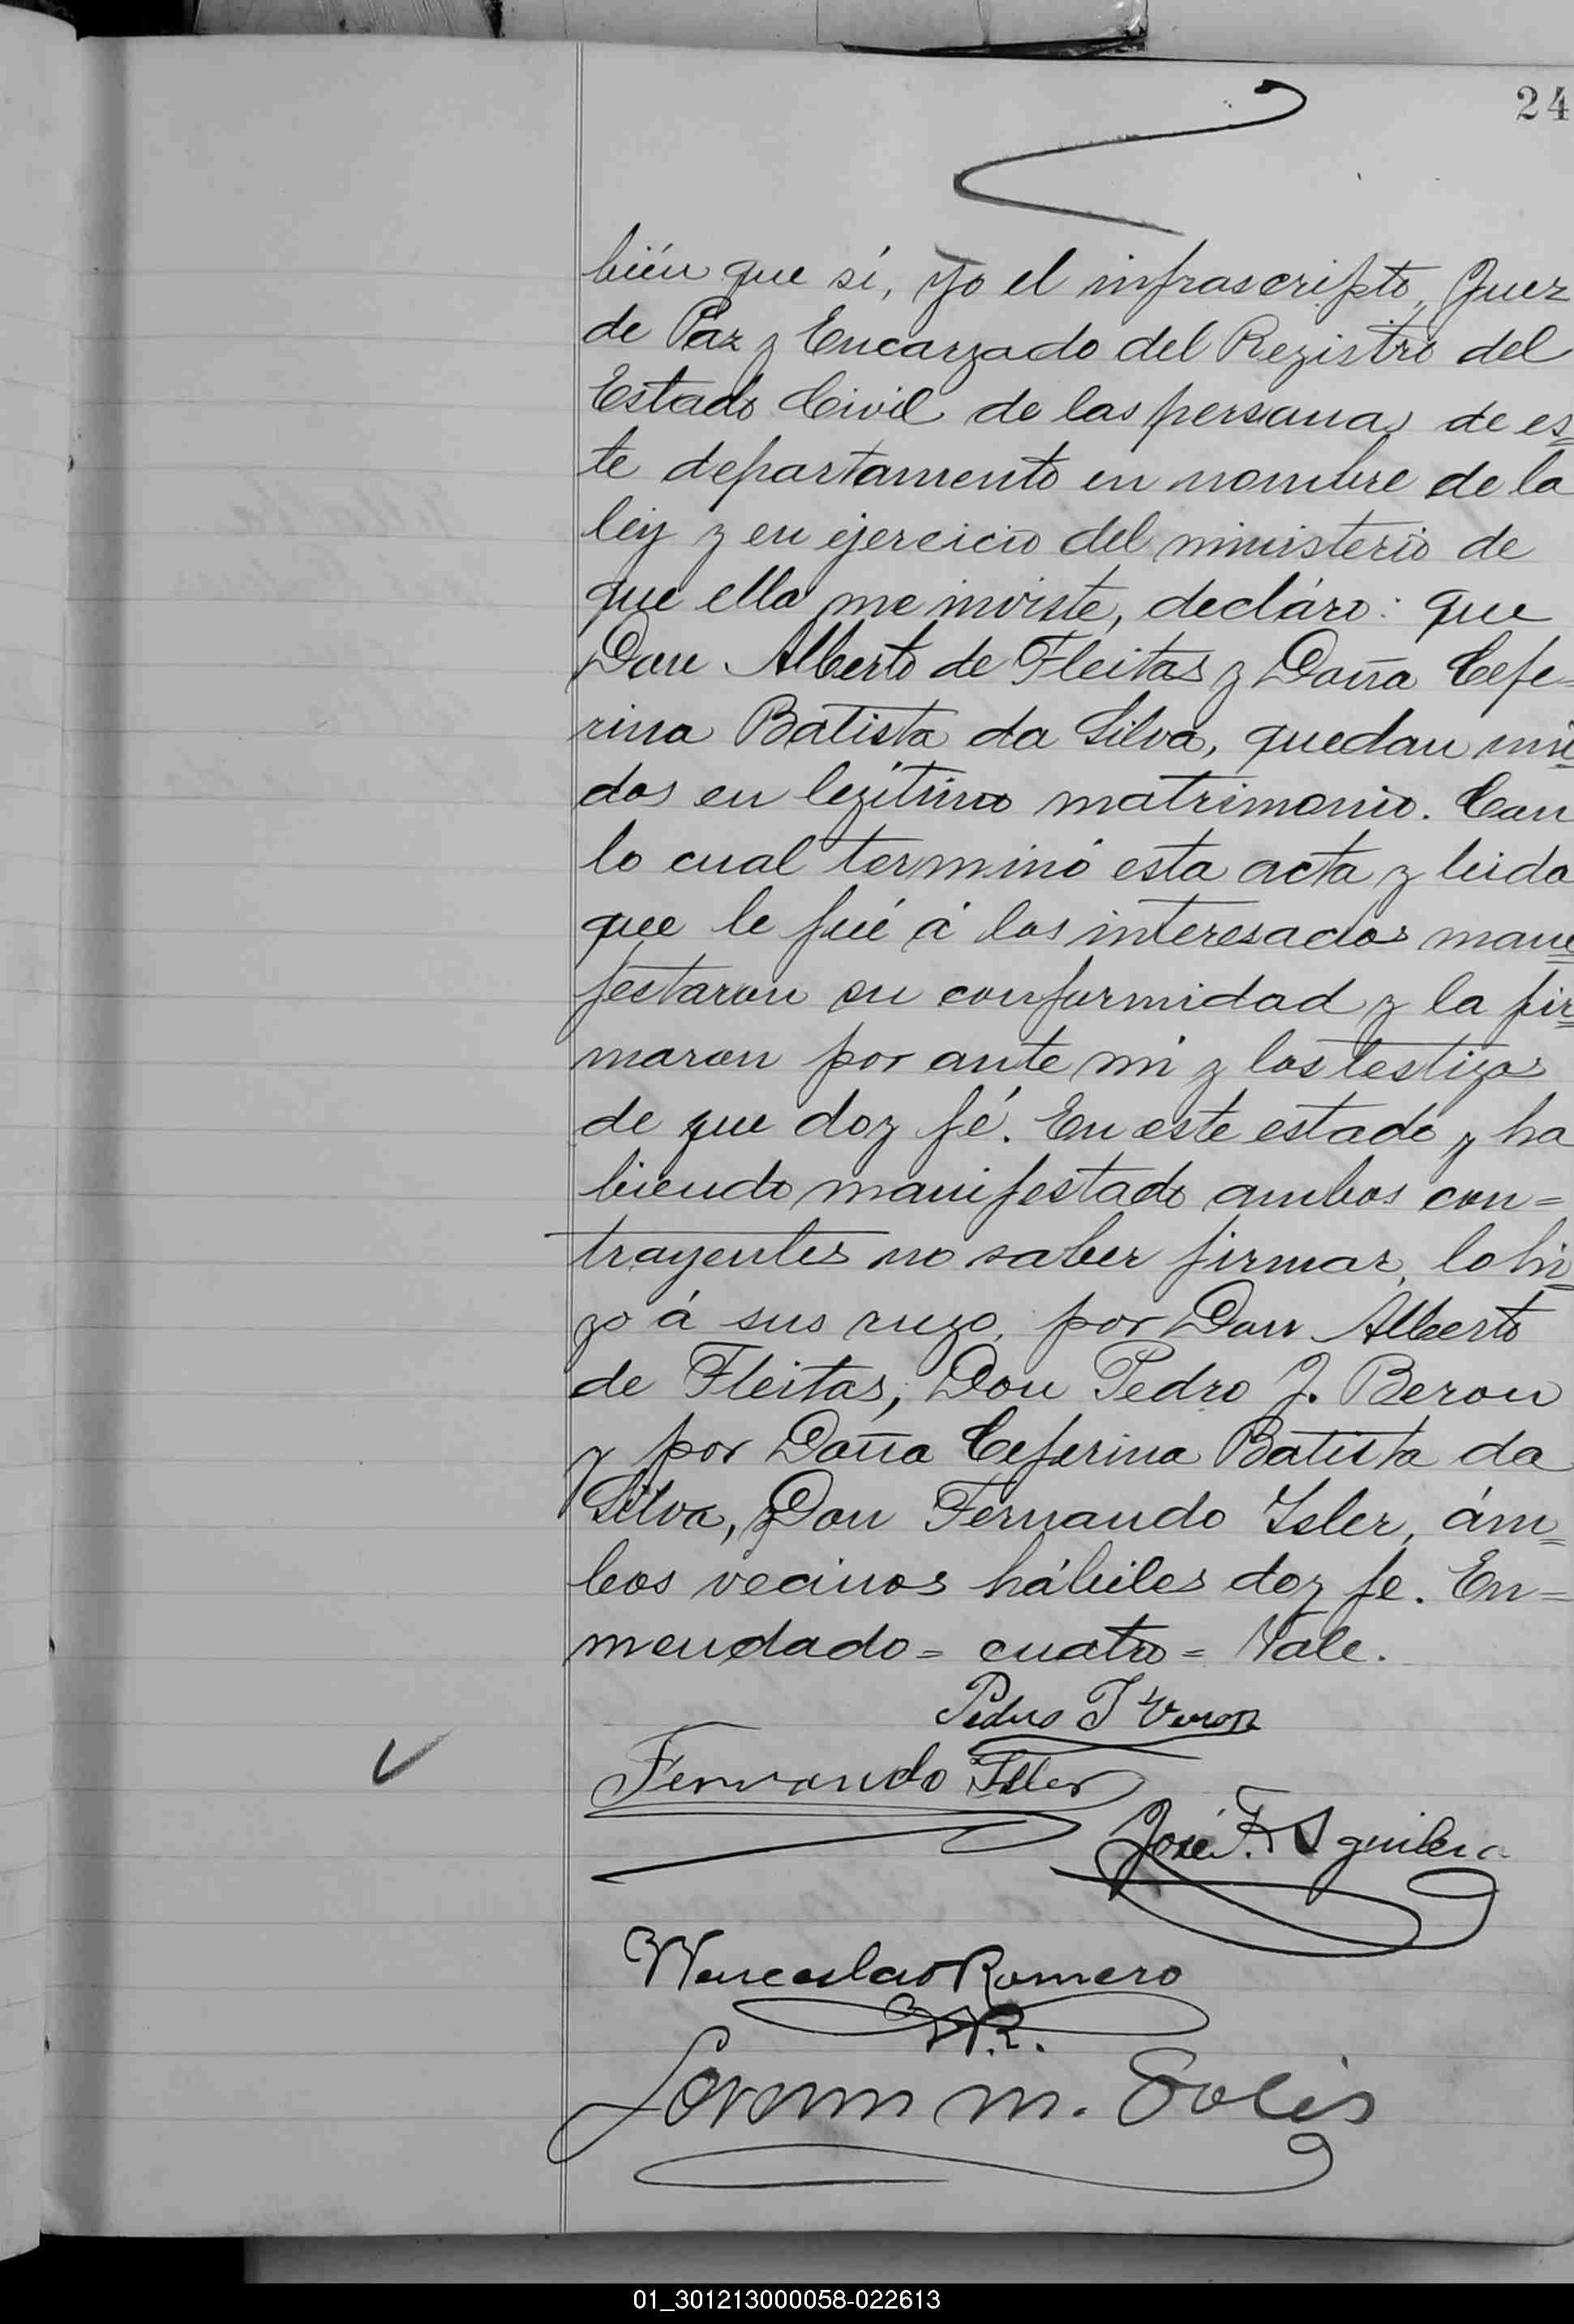 24
bién que sí, yo el infrascripto, Juez
de Paz y Encargado del Registro del
Estado Civil de las personas de es=
te departamento en nombre de la
ley y en ejercicio del ministerio de
que ella me inviste, decláro: que
Don Alberto de Fleitas y Doña Cefe=
rina Batista da Silva, quedan uni=
dos en legítimo matrimonio. Con
lo cual terminó esta acta y leida
que le fué á los interesados mani=
festaron su conformidad y la fir=
maron por ante mi y los testigos
de que doy fé. En este estado y ha
biendo manifestado ambos con=
trayentes no saber firmar, lo hi=
zo á sus ruego, por Don Alberto
de Fleitas, Don Pedro J. Beron
y por Doña Ceferina Batista da
Silva, Don Fernando Isler, ám=
bos vecinos hábiles doy fe. En=
mendado = cuatro = Vale.
Pedro J Veron
Fernando Isler
José F. Aguilera
Wenceslao Romero
W.R.
M. Solis
01_301213000058-022613